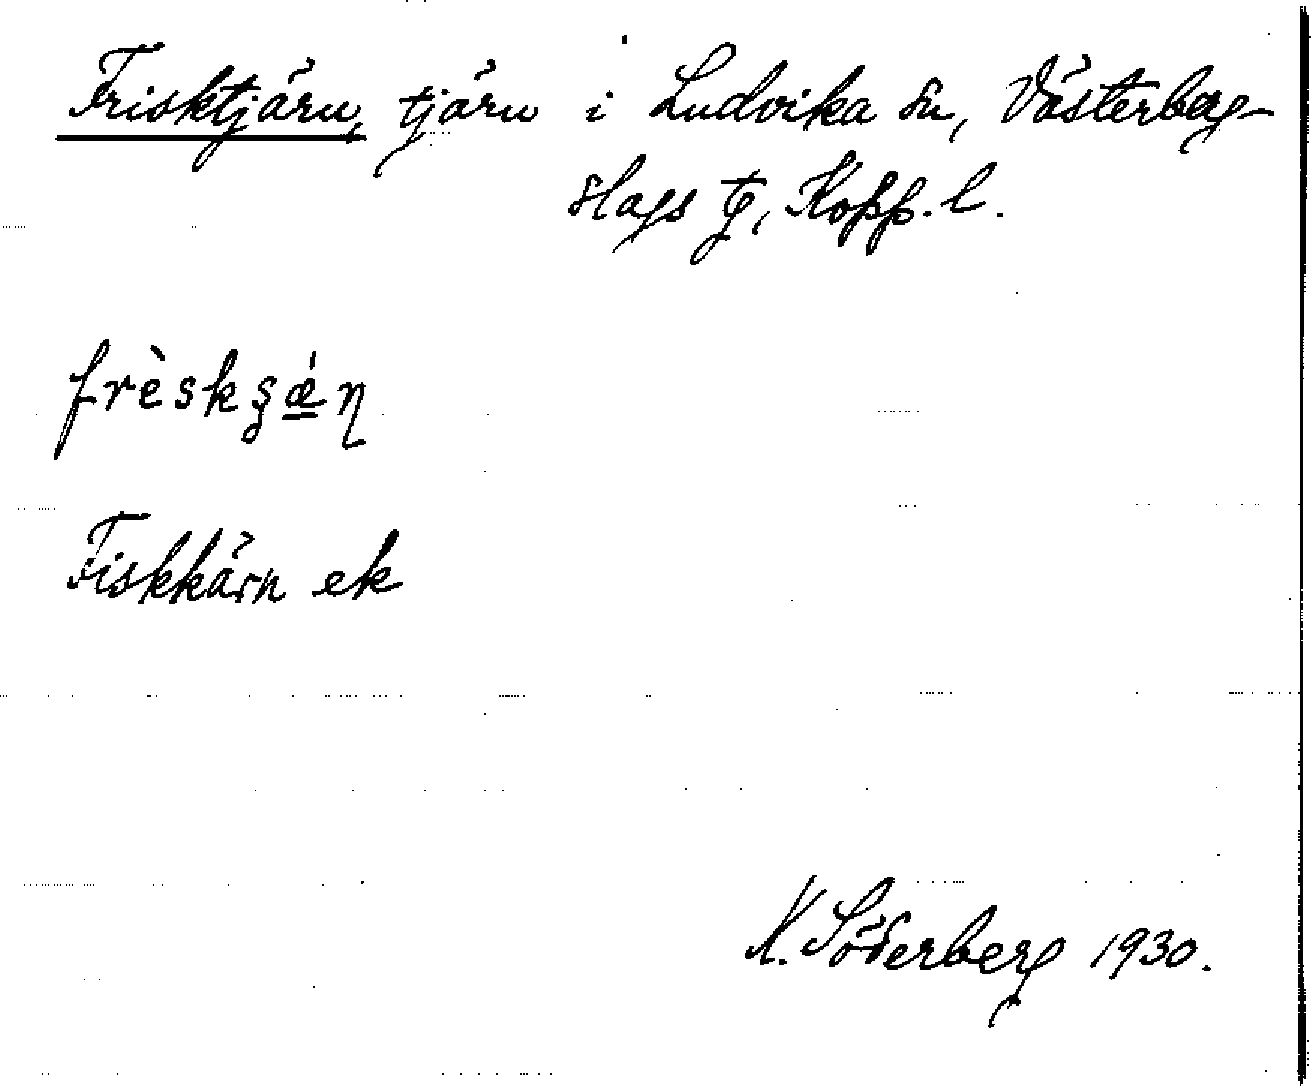 Frisktjärn, tjärn i Ludvika sn, Västerberg-
slags tg, Kopp. l.
frèskʂǽn
Fiskkärn ek
K. Söderberg 1930.